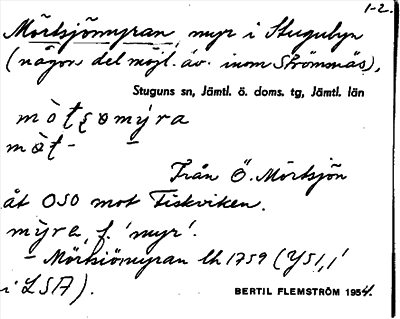 1-2.
Mörtsjömyran, myr i Stugubyn
(någon del möjl. äv. inom Strömnäs),
Stuguns sn, Jämtl. ö. doms. tg, Jämtl. län
mòtʂomýra
mòt-
Från Ö. Mörtsjön
åt OSO mot Fiskviken.
mỳra, f. 'myr'.
- Mörtsiömyran lh 1759 (Y51,1
i LSA).
BERTIL FLEMSTRÖM 1954.